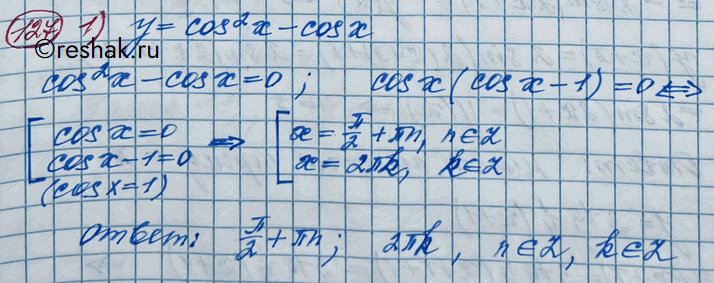 127 1) y = cos²x − cosx
©reshak.ru
cos²x − cosx = 0 ; cosx (cosx − 1) = 0 ⟺
[ cosx = 0 ⟹ [ x = π/2 + πn, n∈Z
cosx − 1 = 0 x = 2πk, k∈Z
(cosx = 1)
Ответ: π/2 + πn ; 2πk , n∈Z, k∈Z